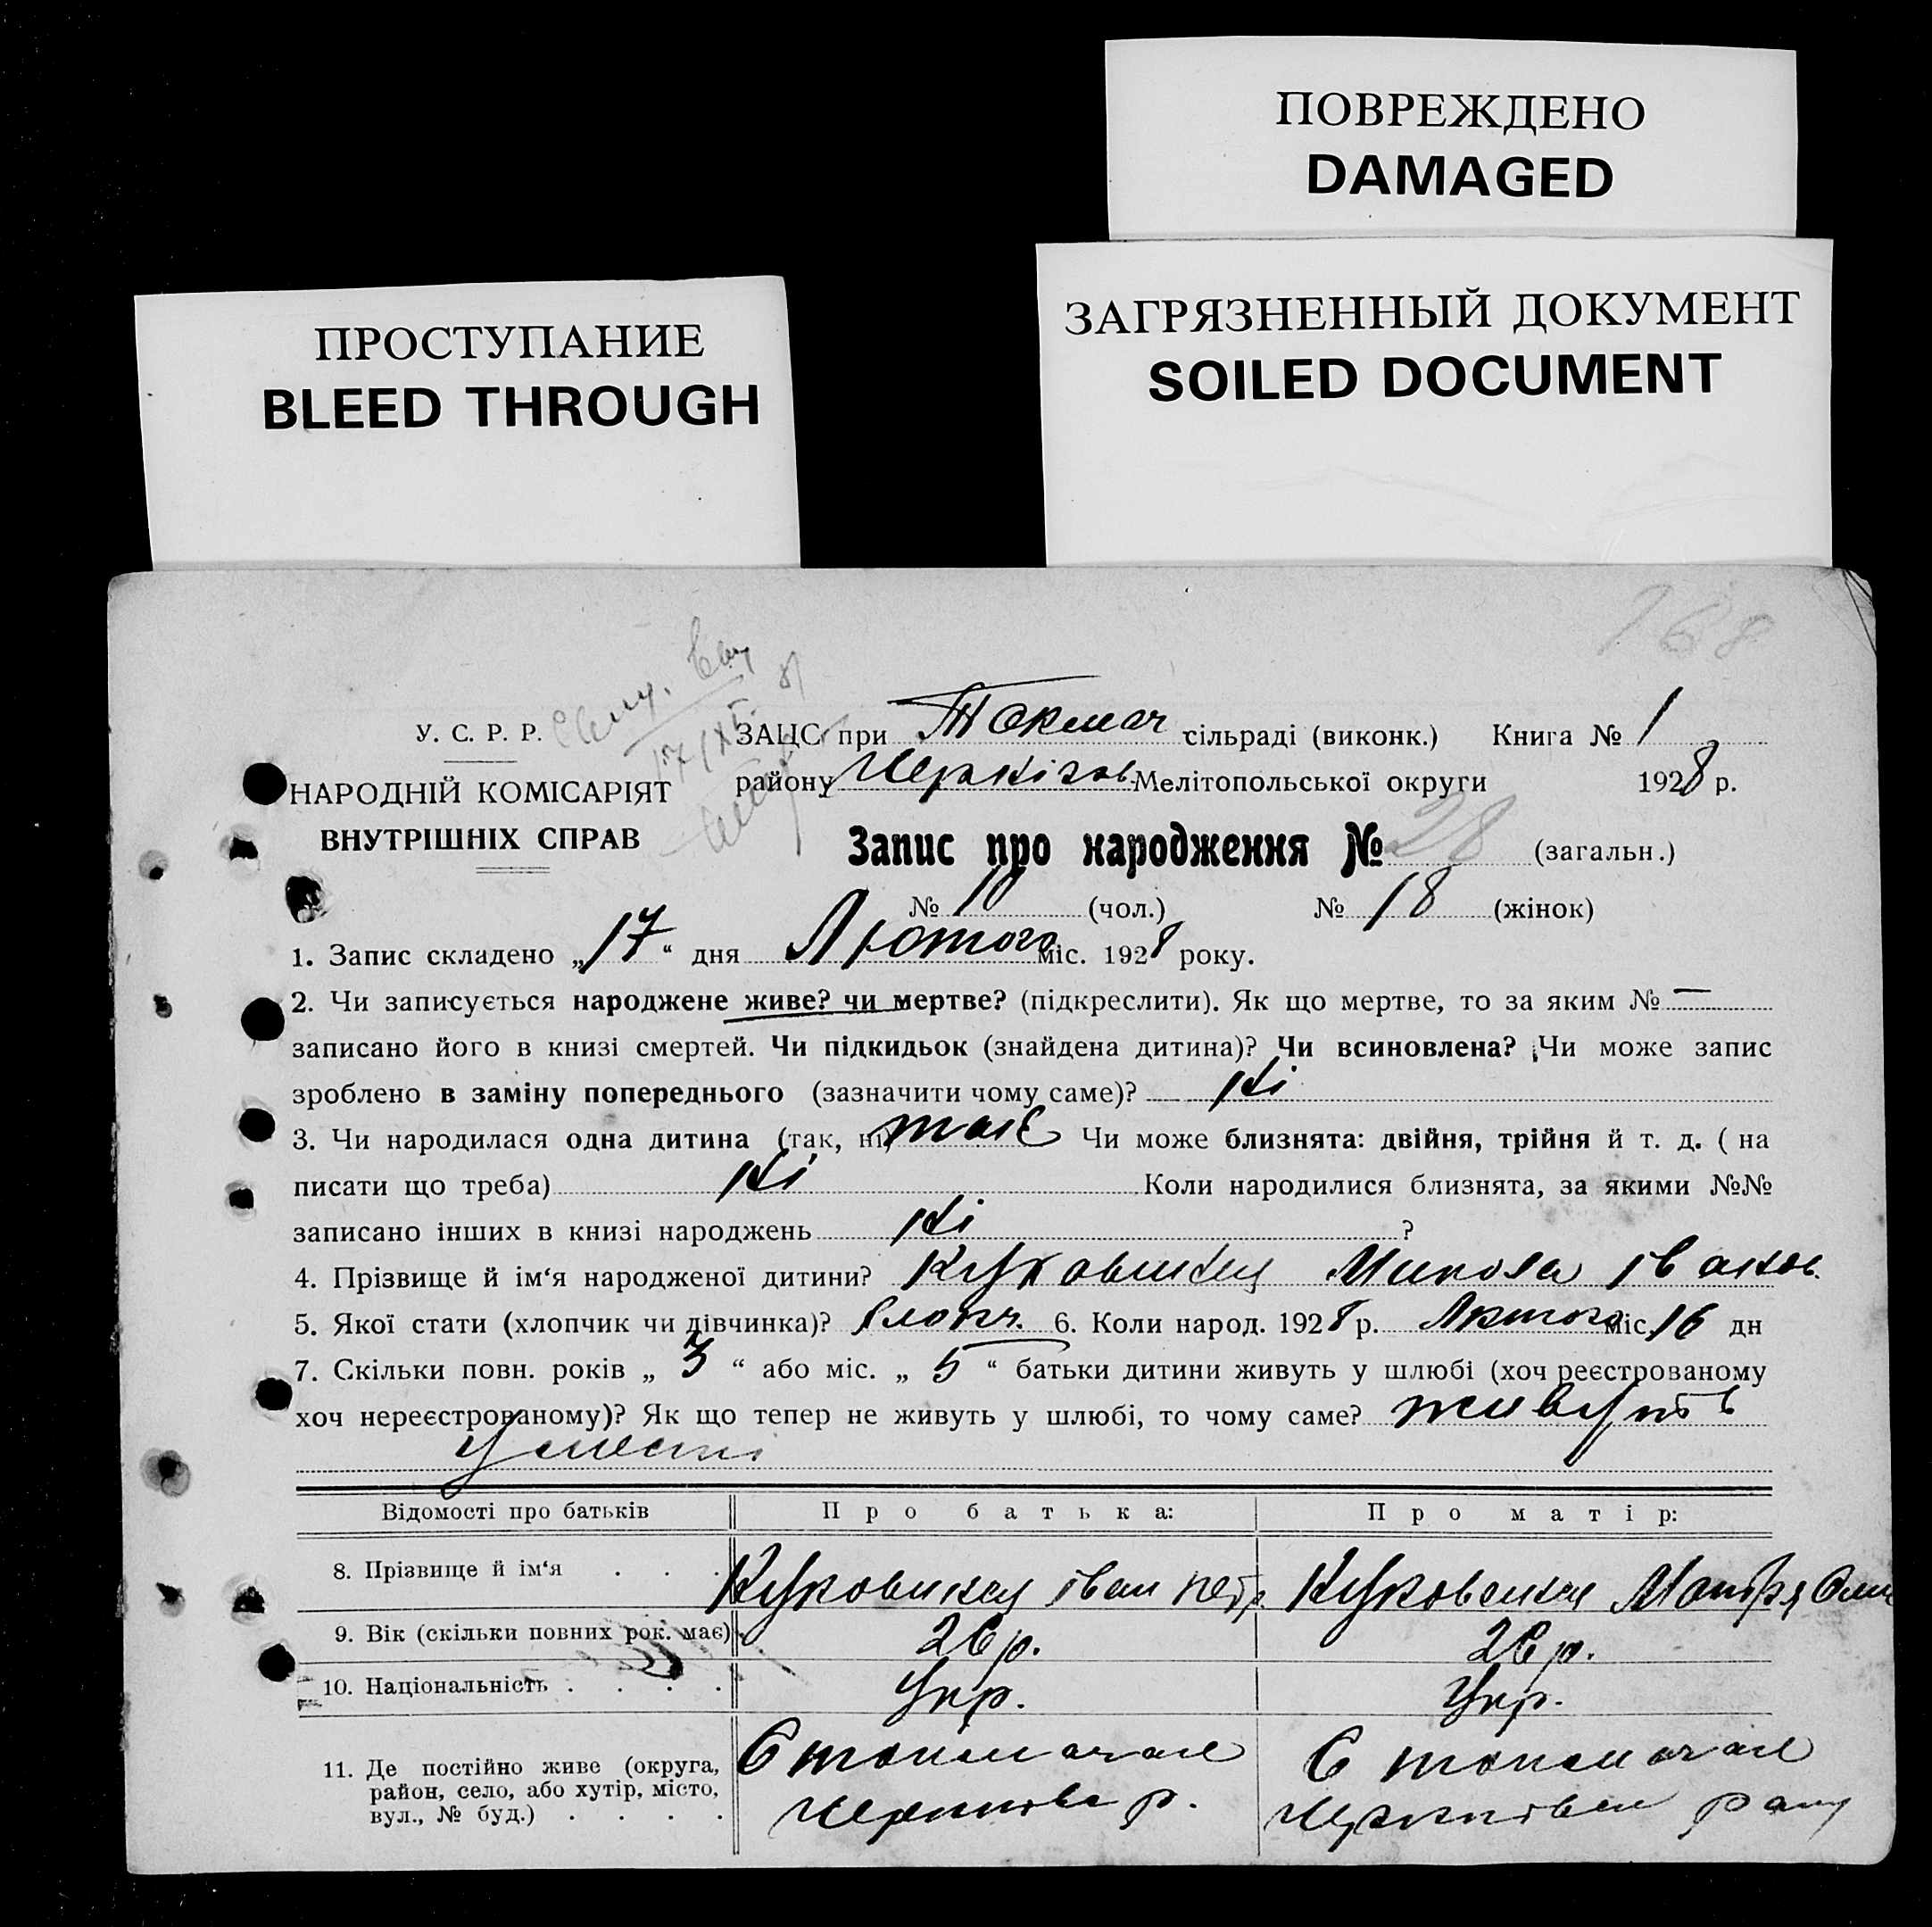 ПОВРЕЖДЕНО
DAMAGED
ПРОСТУПАНИЕ
BLEED THROUGH
ЗАГРЯЗНЕННЫЙ ДОКУМЕНТ
SOILED DOCUMENT
168
У. С. Р. Р.
НАРОДНІЙ КОМІСАРІЯТ
ВНУТРІШНІХ СПРАВ
ЗАЦС при Токмач сільраді (виконк.) Книга № 1
району Мелітопольської округи 1928 р.
Запис про народження № 28 (загальн.)
№ 10 (чол.) № 18 (жінок)
1. Запис складено „17“ дня Лютого міс. 1928 року.
2. Чи записується народжене живе? чи мертве? (підкреслити). Як що мертве, то за яким № —
записано його в книзі смертей. Чи підкидьок (знайдена дитина)? Чи всиновлена? Чи може запис
зроблено в заміну попереднього (зазначити чому саме)? Ні
3. Чи народилася одна дитина (так, ні) так Чи може близнята: двійня, трійня й т. д. ( на
писати що треба) Ні Коли народилися близнята, за якими №№
записано інших в книзі народжень Ні ?
4. Прізвище й ім‘я народженої дитини? Микола Іванов.
5. Якої стати (хлопчик чи дівчинка)? хлопч. 6. Коли народ. 1928 р. Лютого міс. 16 дн
7. Скільки повн. років „ 3 “ або міс. „ 5 “ батьки дитини живуть у шлюбі (хоч реєстрованому
хоч нереєстрованому)? Як що тепер не живуть у шлюбі, то чому саме? живуть
Відомості про батьків Про батька: Про матір:
8. Прізвище й ім‘я . . . Іван Петр.
9. Вік (скільки повних рок. має) 26 р. 26 р.
10. Національність . . . . Укр. Укр.
11. Де постійно живе (округа,
район, село, або хутір, місто,
вул., № буд.) . . . .